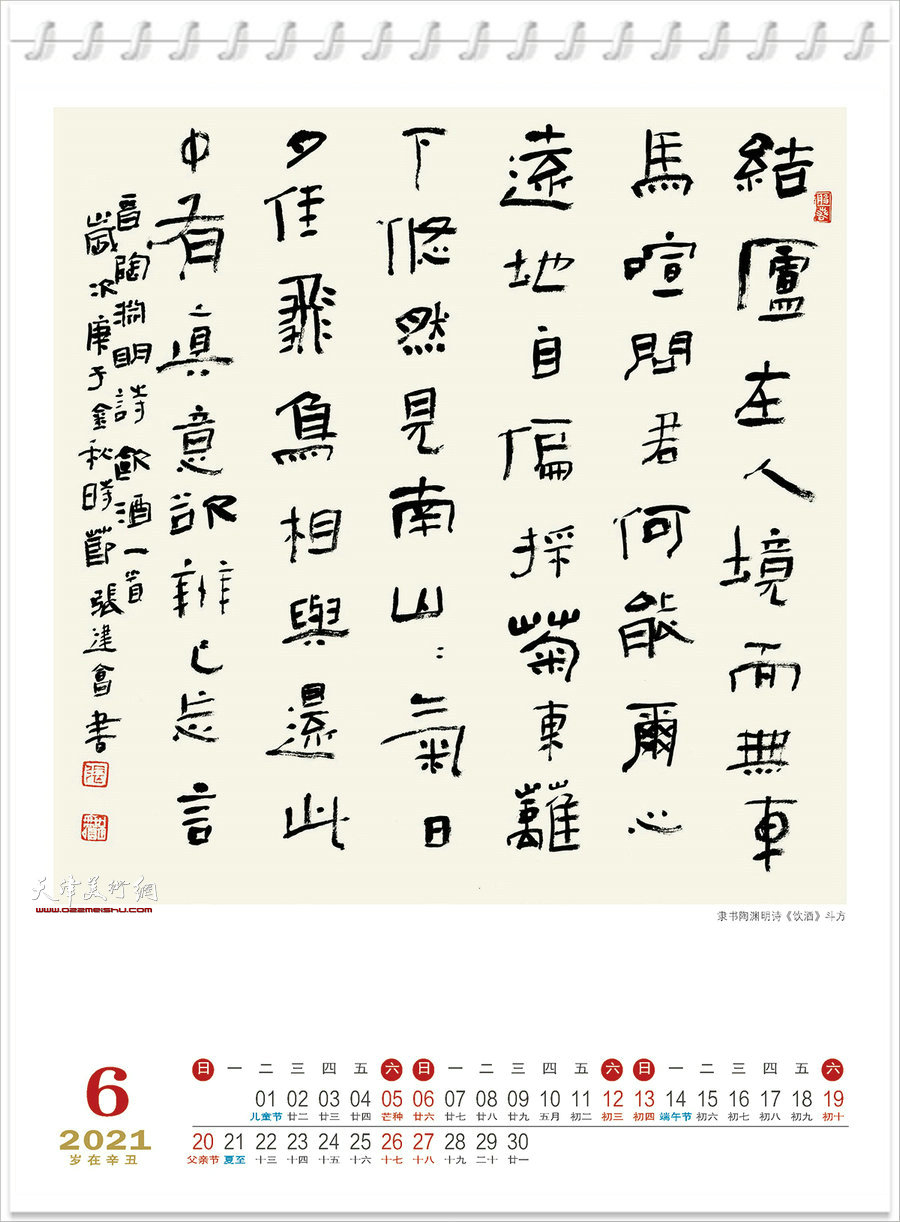 結廬在人境而無車
馬喧問君何能爾心
遠地自偏採菊東籬
下悠然見南山〻氣日
夕佳飛鳥相與還此
中有真意欲辨已忘言
晉陶淵明詩飲酒一首
歲次庚子金秋時節張建會書
天津美術網
www.022meishu.com
隶书陶渊明诗《饮酒》斗方
6
2021
岁在辛丑
日 一 二 三 四 五 六 日 一 二 三 四 五 六 日 一 二 三 四 五 六
01 02 03 04 05 06 07 08 09 10 11 12 13 14 15 16 17 18 19
儿童节 廿二 廿三 廿四 芒种 廿六 廿七 廿八 廿九 五月 初二 初三 初四 端午节 初六 初七 初八 初九 初十
20 21 22 23 24 25 26 27 28 29 30
父亲节 夏至 十三 十四 十五 十六 十七 十八 十九 二十 廿一